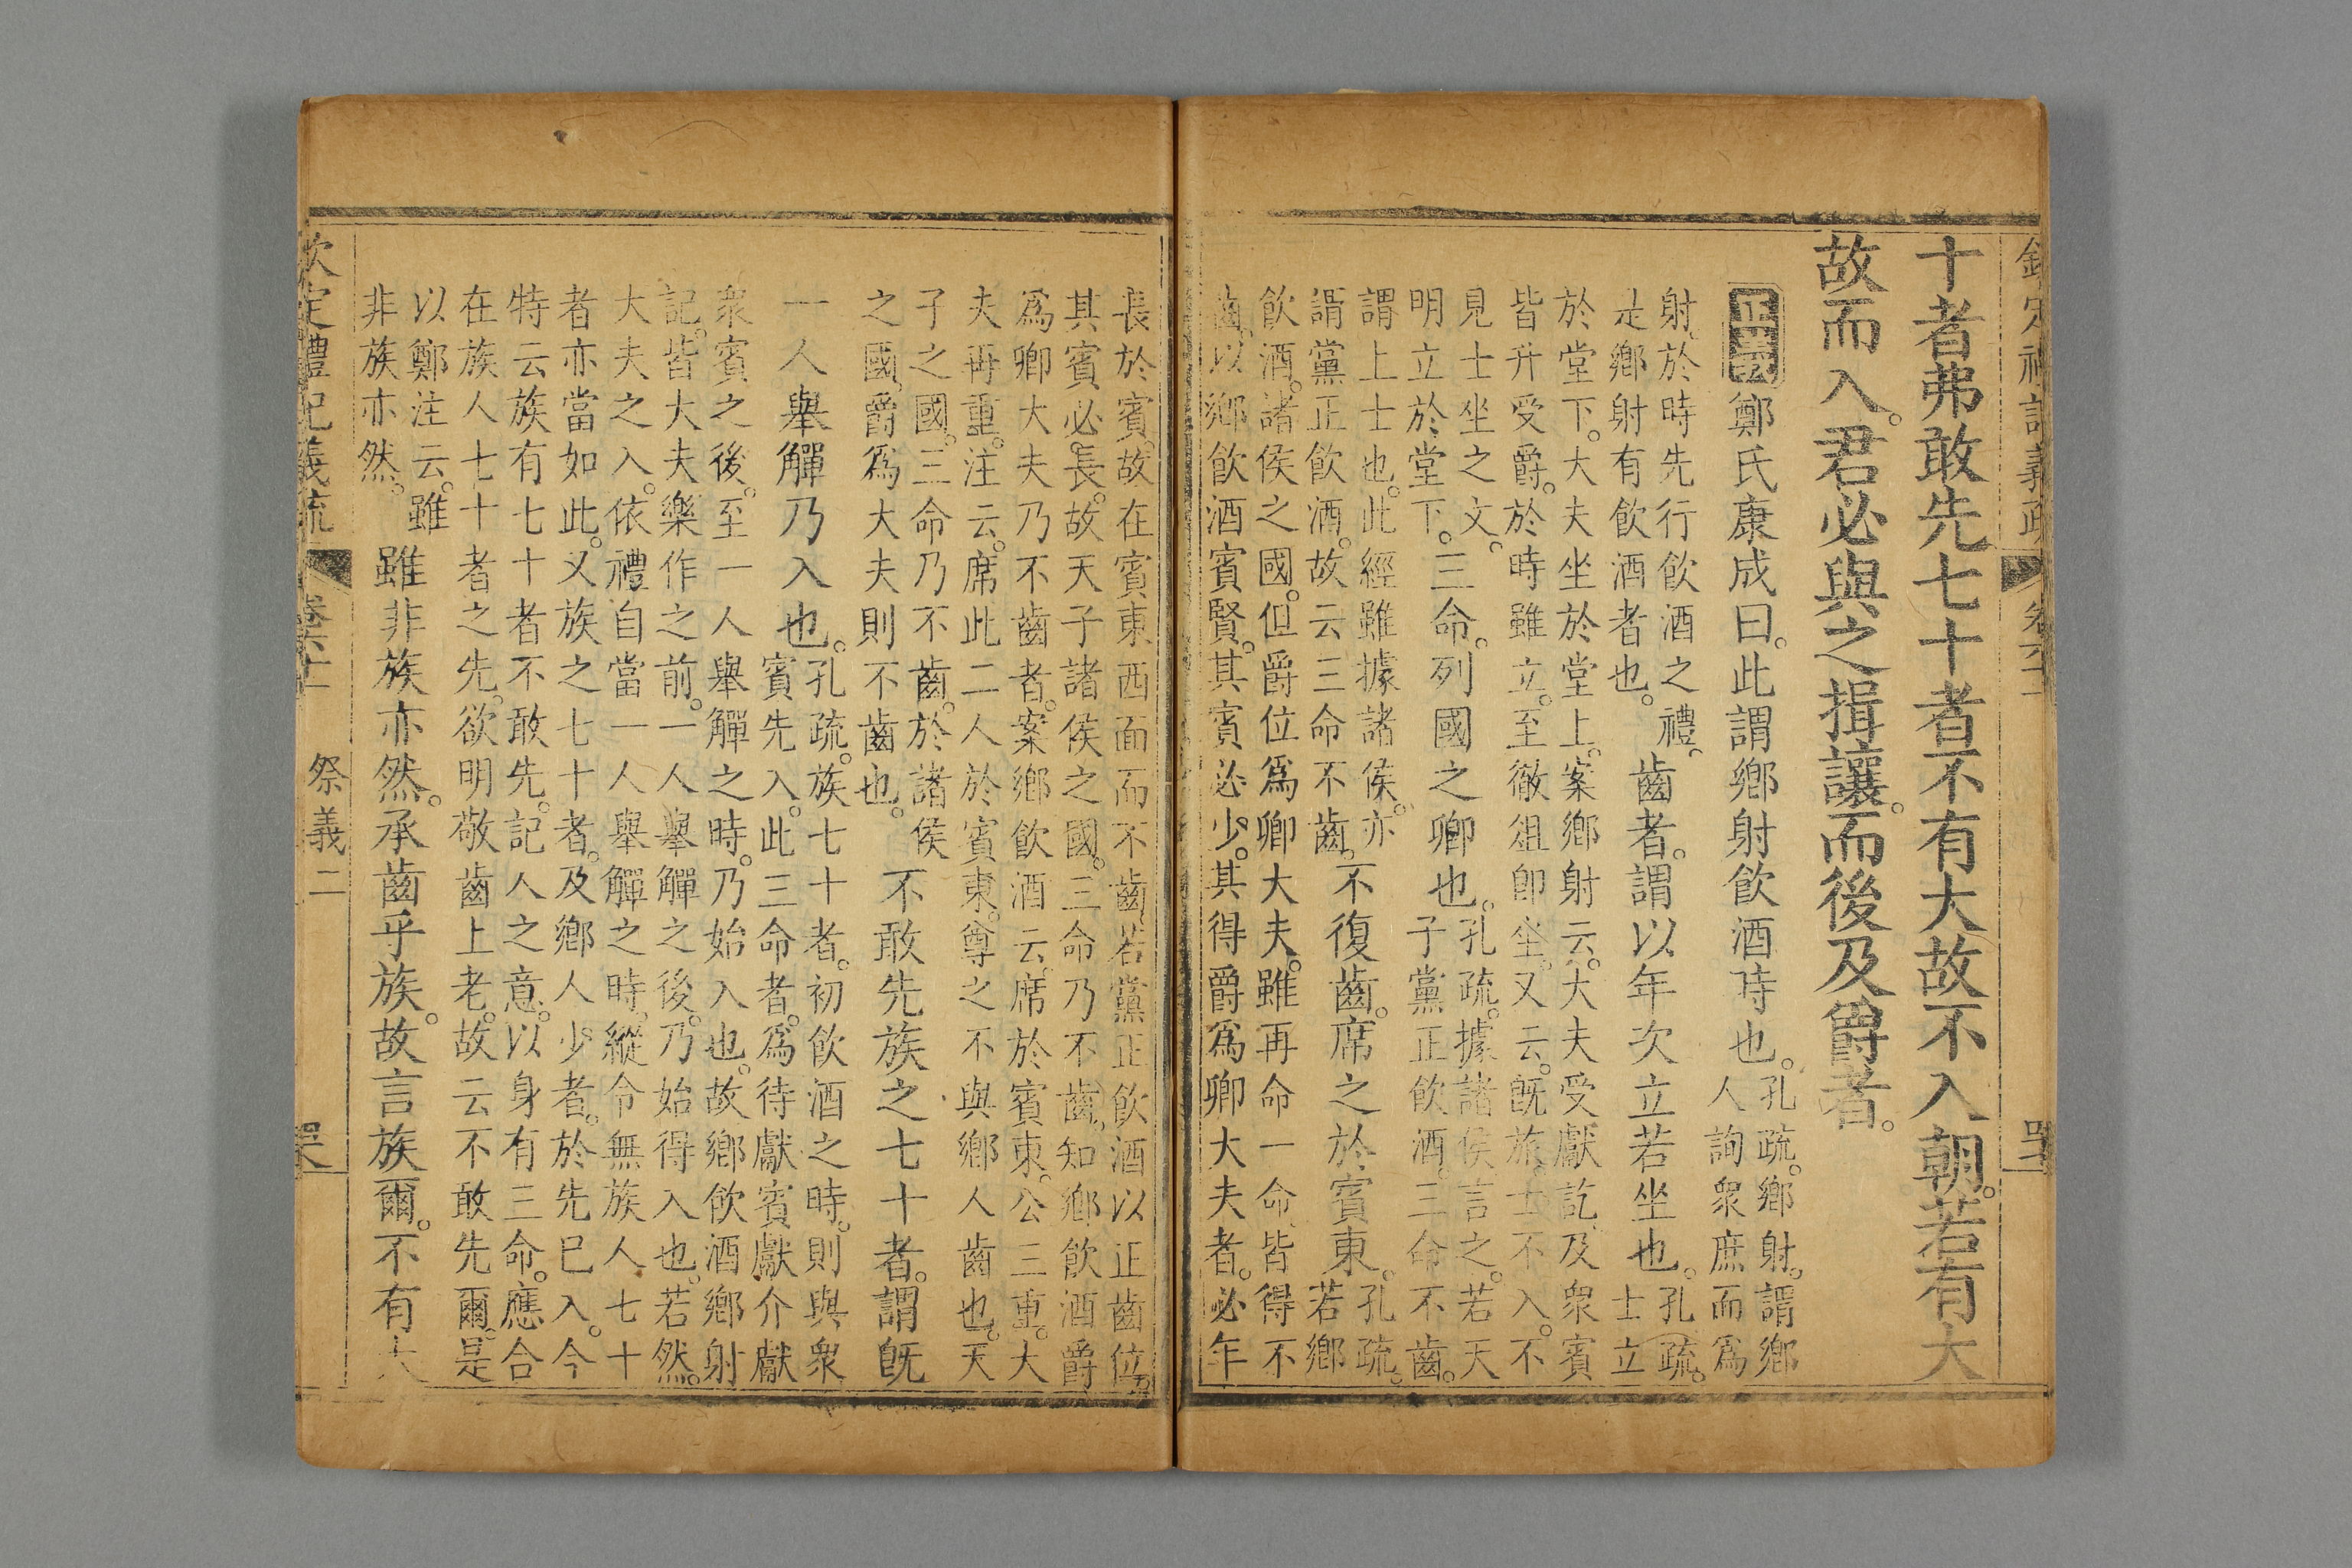 欽定禮記義疏 卷六十一
十者弗敢先七十者不有大故不入朝。若有大
故而入。君必與之揖讓。而後及爵者。
正義 鄭氏康成曰。此謂鄉射飲酒時也。
孔疏。鄉射。謂鄉
人詢衆庶而爲
射。於時先行飲酒之禮。
是鄉射有飲酒者也。
齒者。謂以年次立若坐也。
孔疏。
士立
於堂下。大夫坐於堂上。案鄉射云。大夫受獻訖及衆賓
皆升受爵。於時雖立。至徹俎卽坐。又云。旣旅士不入。不
見士坐之文。
明立於堂下。
三命。列國之卿也。
孔疏。據諸侯言之。若天
子黨正飲酒。三命不齒。
謂上士也。此經雖據諸侯。亦
謂黨正飲酒。故云三命不齒。
不復齒。席之於賓東。
孔疏。
若鄉
飲酒。諸侯之國。但爵位爲卿大夫。雖再命一命皆得不
齒。以鄉飲酒賓賢。其賓必少。其得爵爲卿大夫者。必年
長於賓。故在賓東西面而不齒。若黨正飲酒以正齒位
其賓必長。故天子諸侯之國。三命乃不齒。知鄉飲酒爵
爲卿大夫乃不齒者。案鄉飲酒云。席於賓東。公三重。大
夫再重。注云。席此二人於賓東。尊之不與鄉人齒也。天
子之國。三命乃不齒。於諸侯
之國。爵爲大夫則不齒也。
不敢先族之七十者。謂旣
一人舉觶乃入也。
孔疏。族七十者。初飲酒之時。則與衆
賓先入。此三命者。爲待獻賓獻介獻
衆賓之後。至一人舉觶之時。乃始入也。故鄉飲酒鄉射
記。皆大夫樂作之前。一人舉觶之後。乃始得入也。若然。
大夫之入。依禮自當一人舉觶之時。縱令無族人七十
者亦當如此。又族之七十者。及鄉人少者。於先已入。今
特云族有七十者不敢先。記人之意。以身有三命。應合
在族人七十者之先。欲明敬齒上老。故云不敢先爾。是
以鄭注云。雖
非族亦然。
雖非族亦然。承齒乎族。故言族爾。不有大
欽定禮記義疏 卷六十一 祭義二